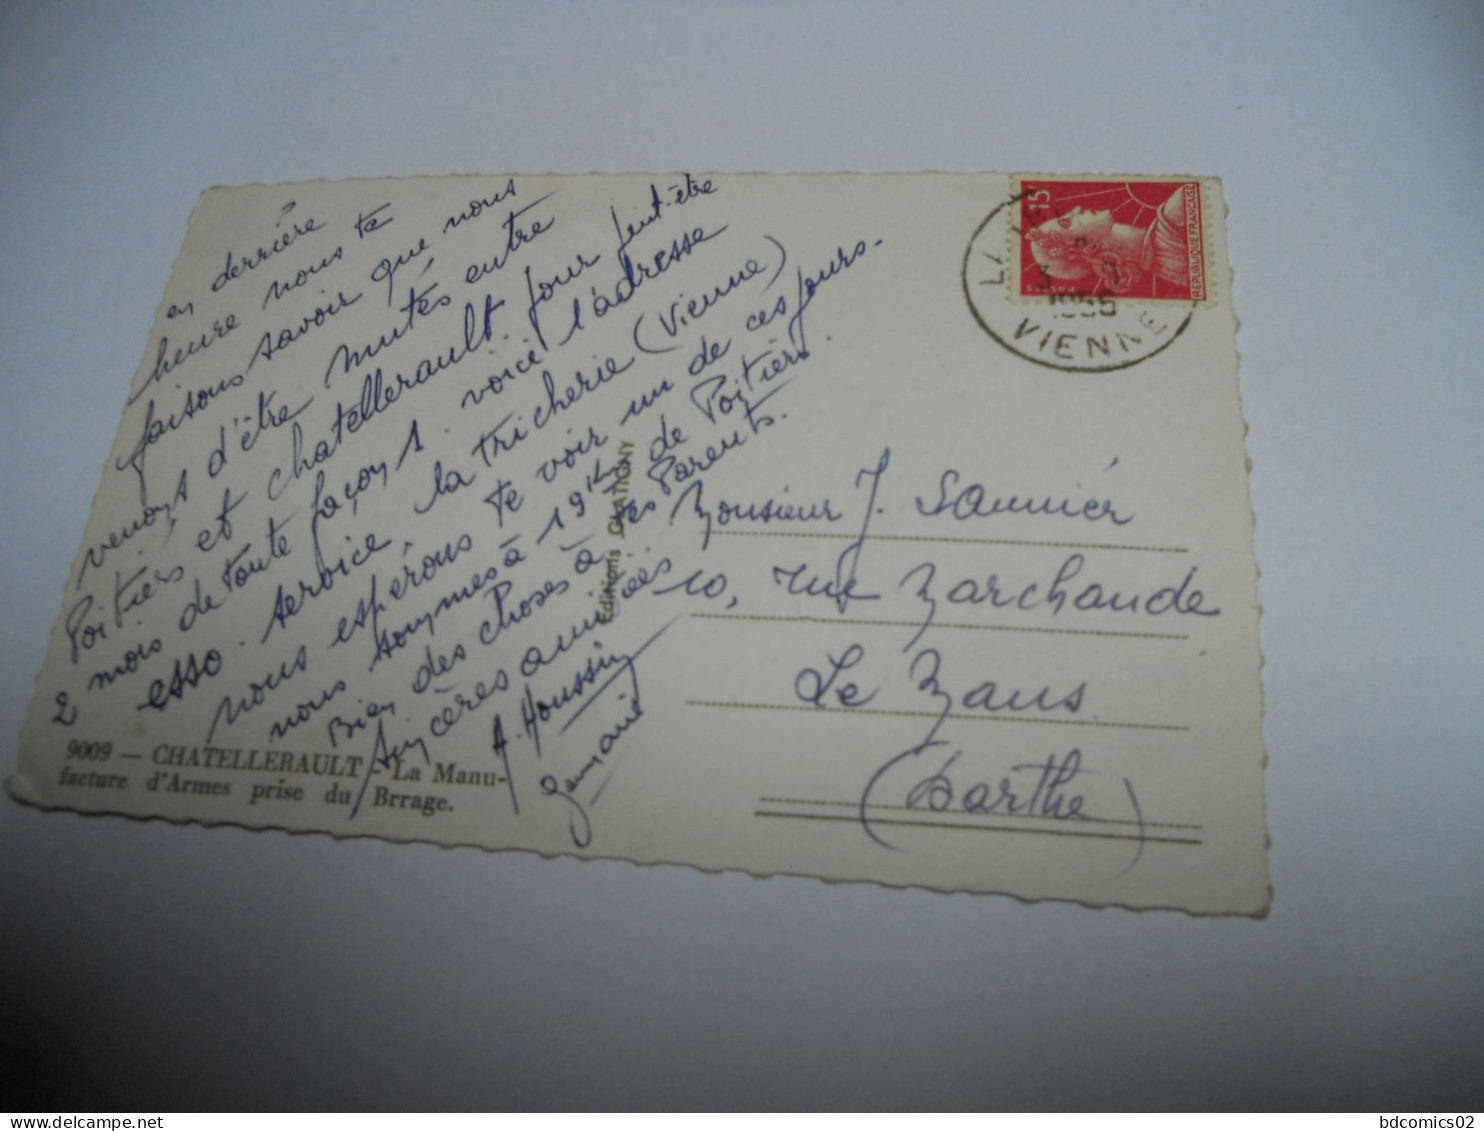 en derrière
heure nous te
faisons savoir que nous
venons d'être mutés entre
Poitiers et chatellerault pour peut-être
2 mois de toute façon voici l'adresse
esso. service. la tricherie (Vienne)
nous espérons te voir un de ces jours.
nous sommes à 19 de Poitiers.
Bien des choses à tes Parents.
Sincères amitiés
A. Houssin
9009 — CHATELLERAULT - La Manu-
facture d'Armes prise du Brrage.
Editions GLATIGNY
15F
POSTES
REPUBLIQUE FRANÇAISE
VIENNE
Monsieur J. Saunier
10, rue Marchande
Le Mans
(Sarthe)
bdcomics02